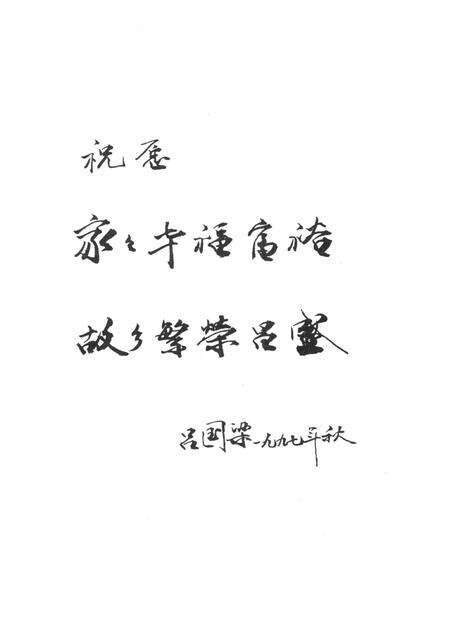 祝愿
家々幸福富裕
故乡繁荣昌盛
吕国梁一九九七年秋